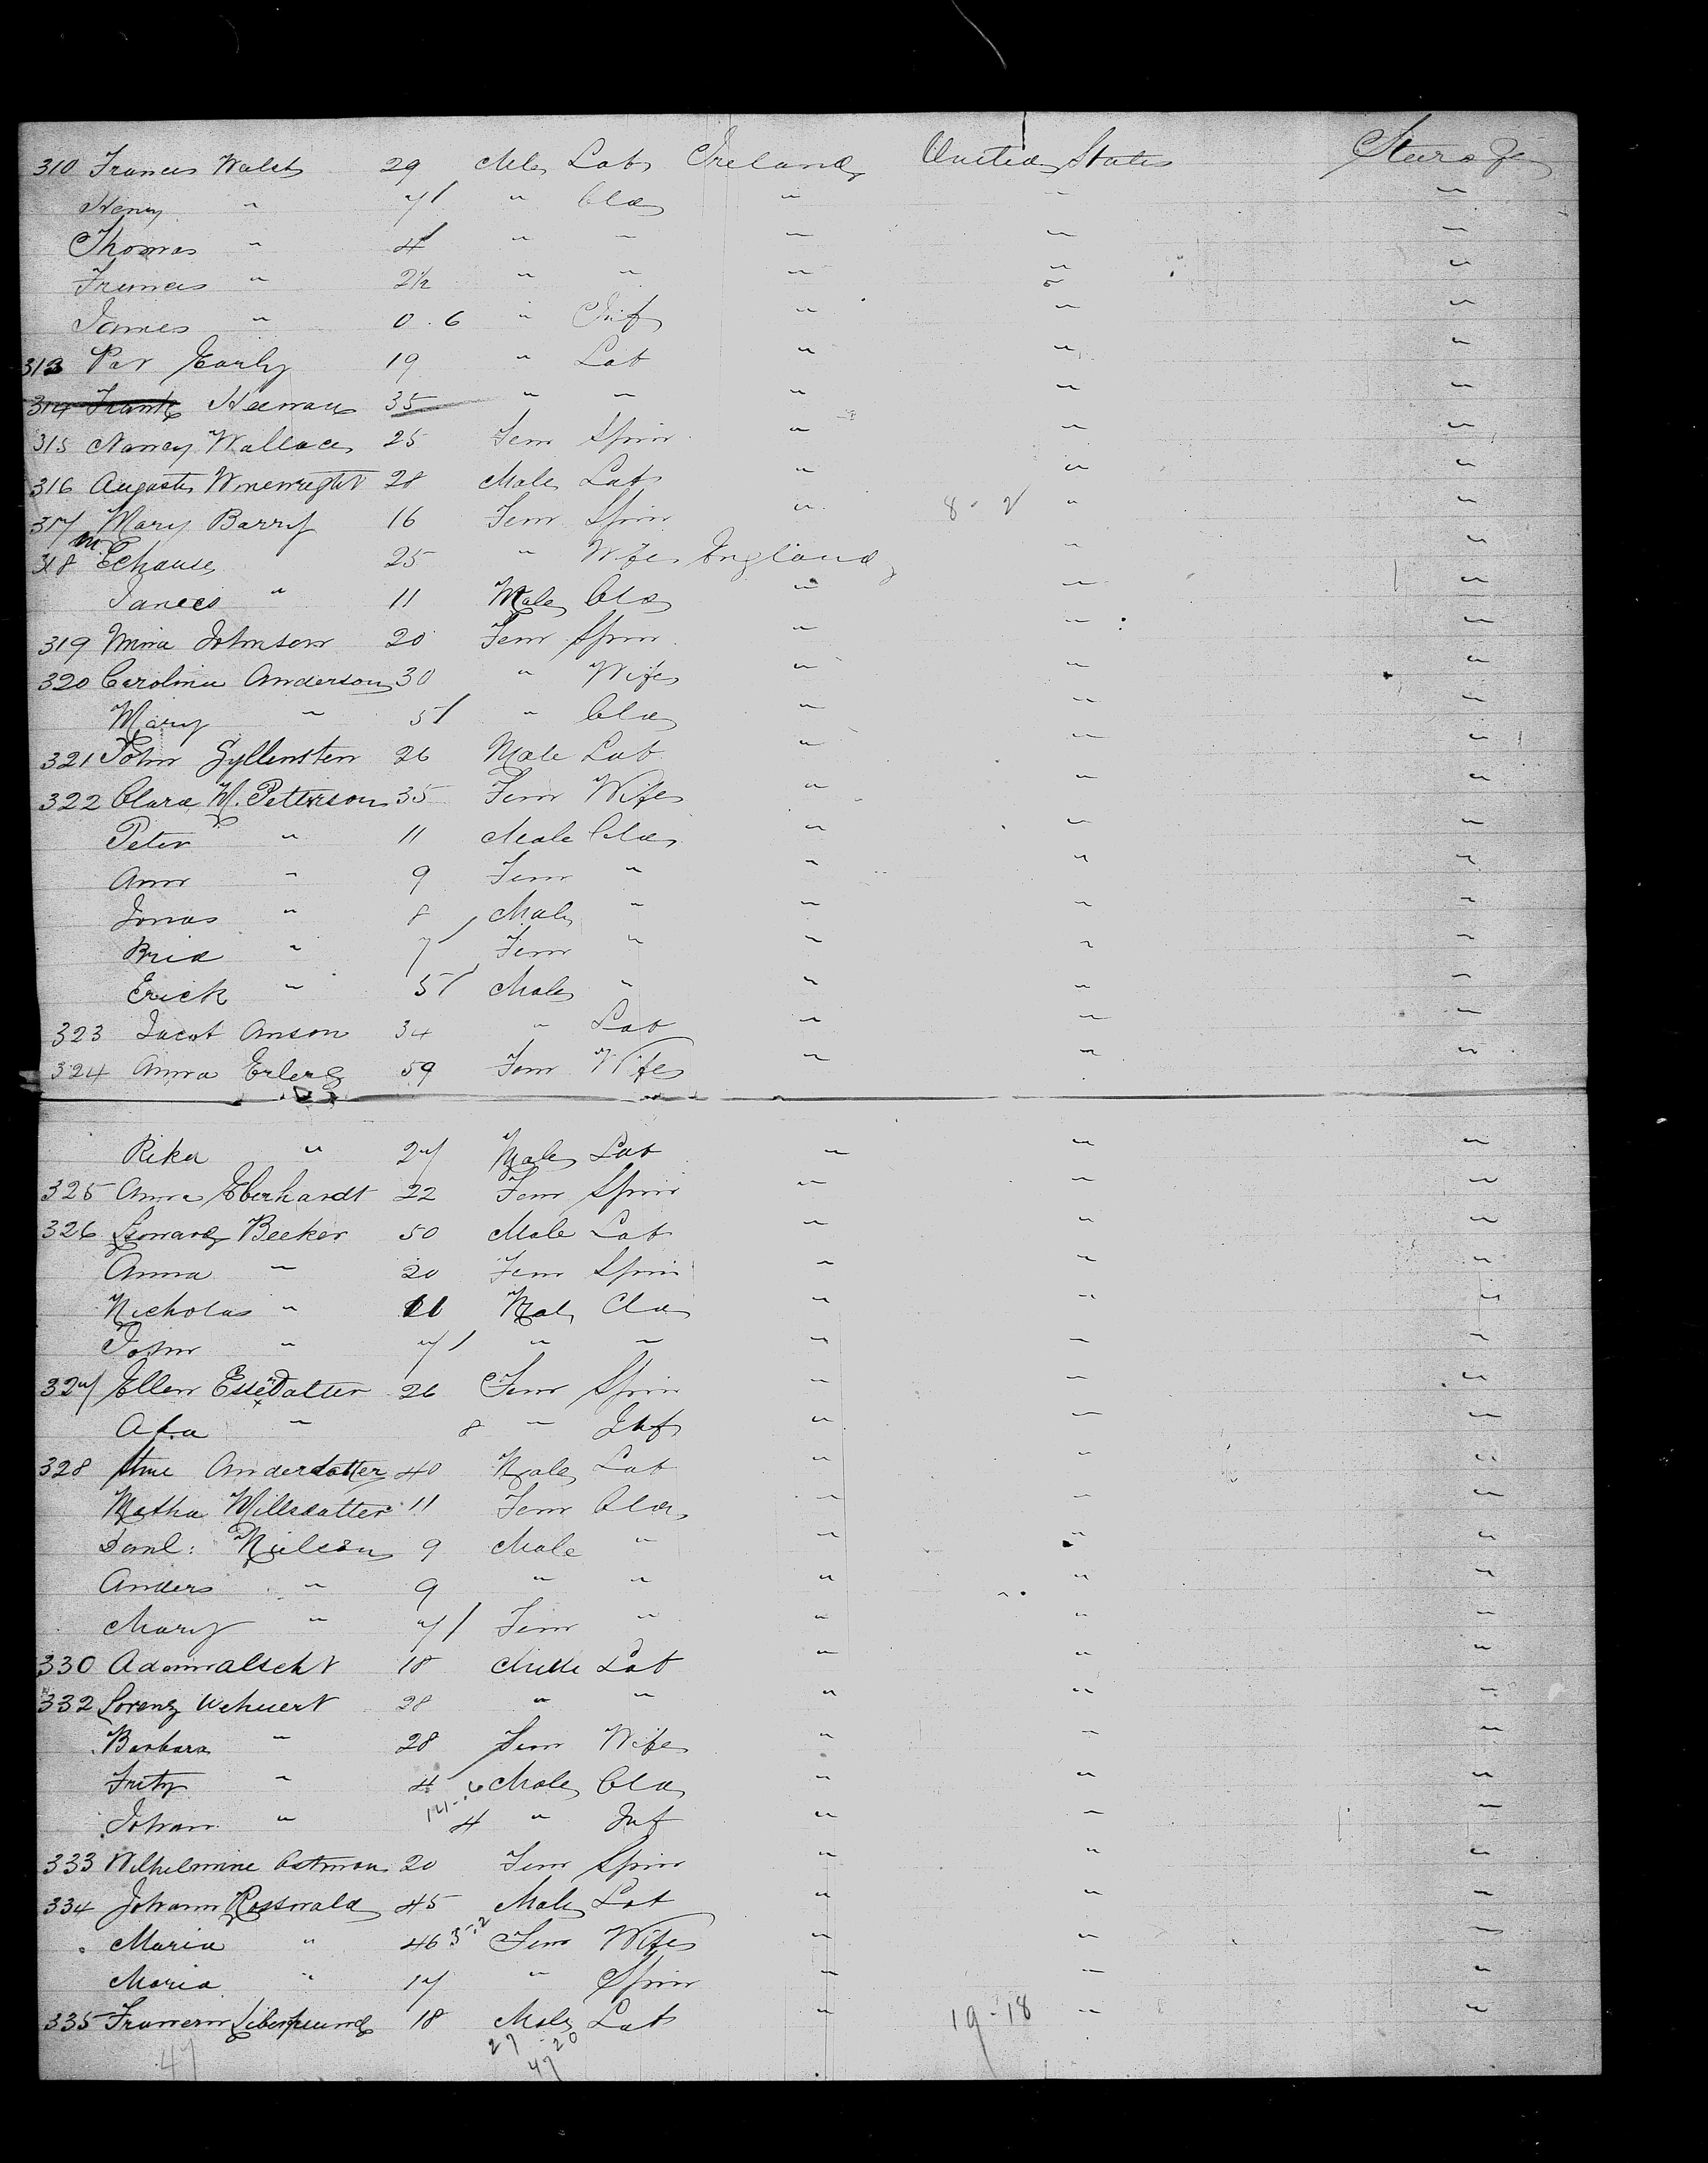 310 Frances Walsh 29 Male Lab Ireland United States Steerage
Henry " 7/ " Cld " " "
Thomas " 4/ " " " " "
Frances " 2½ " " " " "
James " 0.6 " Inf " " "
313 Pat Early 19 " Lab " " "
314 Frank Heenan 35 " " " " "
315 Nancy Wallace 25 Fem Spin " " "
316 28 Male Lab " " "
317 Mary Barry 16 Fem Spin " 8-2 " "
318 25 " Wife England " "
" 11 Male Cld " " "
319 Mina Johnson 20 Fem Spin " " "
320 Carolina Anderson 30 " Wife " " "
Mary " 5/ " Cld " " "
321 John Gyllensten 26 Male Lab " " "
322 Clara M. Peterson 35 Fem Wife " " "
Peter " 11 Male Cld " " "
Ann " 9 Fem " " " "
Jonas " 8 Male " " " "
" 7/ Fem " " " "
Erick " 5/ Male " " " "
323 Jacob Anson 34 " Lab " " "
324 Anna 59 Fem Wife " " "
Rika " 27 Male Lab " " "
325 Anna Eberhardt 22 Fem Spin " " "
326 Leonard Becker 50 Male Lab " " "
Anna " 20 Fem Spin " " "
Nicholas " 11 Male Cld " " "
John " 7/ " " " " "
327 Ellen 26 Fem Spin " " "
" 8 " Inf " " "
328 Andersdatter 40 Male Lab " " "
Matha Millsdatter 11 Fem Cld " " "
Danl: Nielson 9 Male " " " "
Anders " 9 " " " " "
Mary " 7/ Fem " " " "
330 Adam Alscht 18 Male Lab " " "
332 Lorenz Wehuert 28 " " " " "
Barbara " 28 Fem Wife " " "
Fritz " 4 6 Male Cld " " "
Johann " 4 " Inf " " "
333 Wilhelmine 20 Fem Spin " " "
334 Johann Rosswald 45 Male Lab " " "
Maria " 46 Fem Wife " " "
Maria " 17 " Spin " " "
335 18 Male Lab " 19-18 " "
47 27 20
47